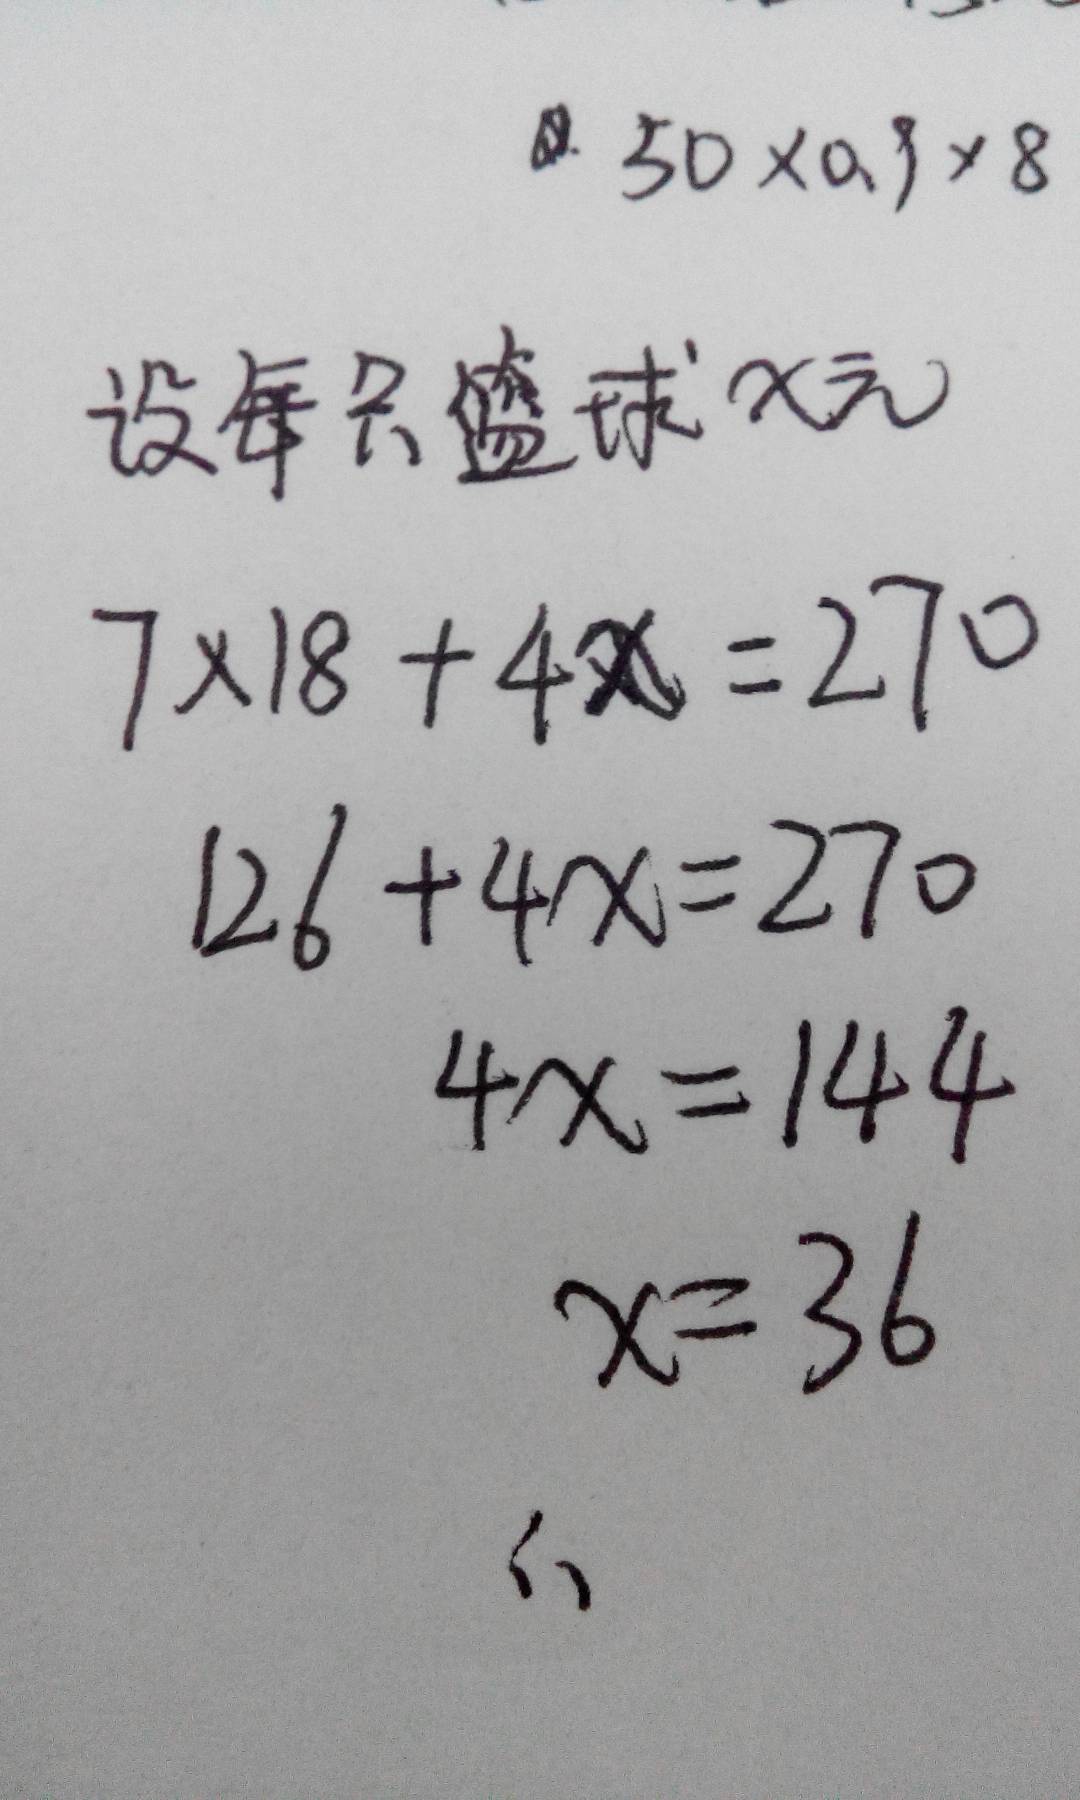 50×0.9×8
设每只篮球x元
7×18+4x=270
126+4x=270
4x=144
x=36